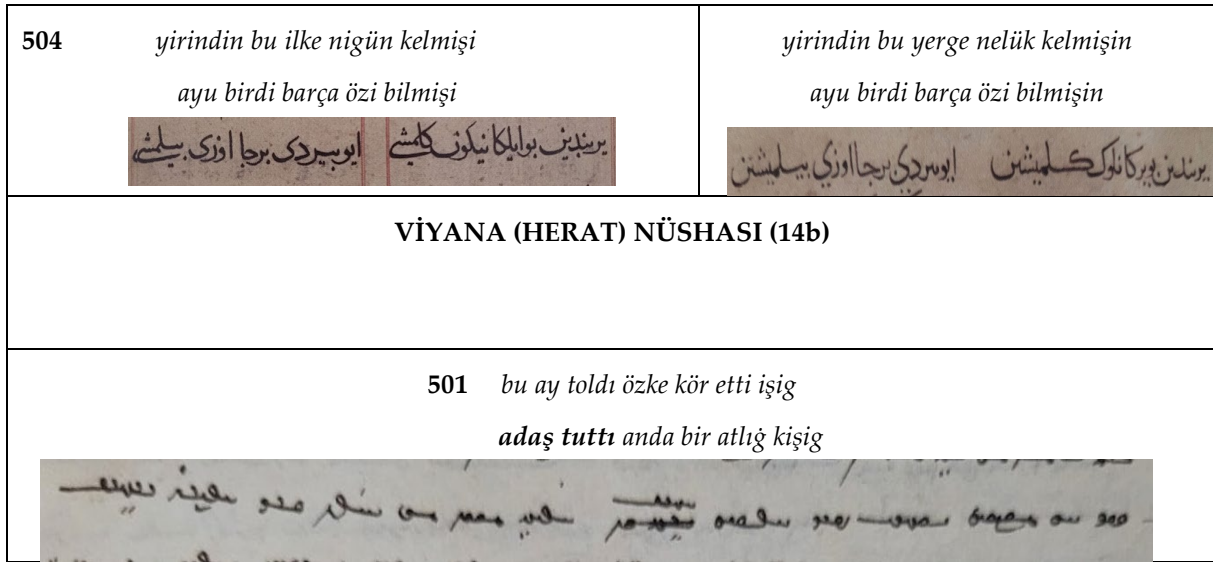 504 yirindin bu ilke nigün kelmişi
ayu birdi barça özi bilmişi
يريندين بو ايلكا نيكون كلمشي ايو بيردى برجا اوزى بيلمشي
yirindin bu yerge nelük kelmişin
ayu birdi barça özi bilmişin
يريندن بو يركا نلوك كلميشن ايو بيردي برجا اوزي بيلميشن
VİYANA (HERAT) NÜSHASI (14b)
501 bu ay toldı özke kör etti işig
adaş tuttı anda bir atlıġ kişig